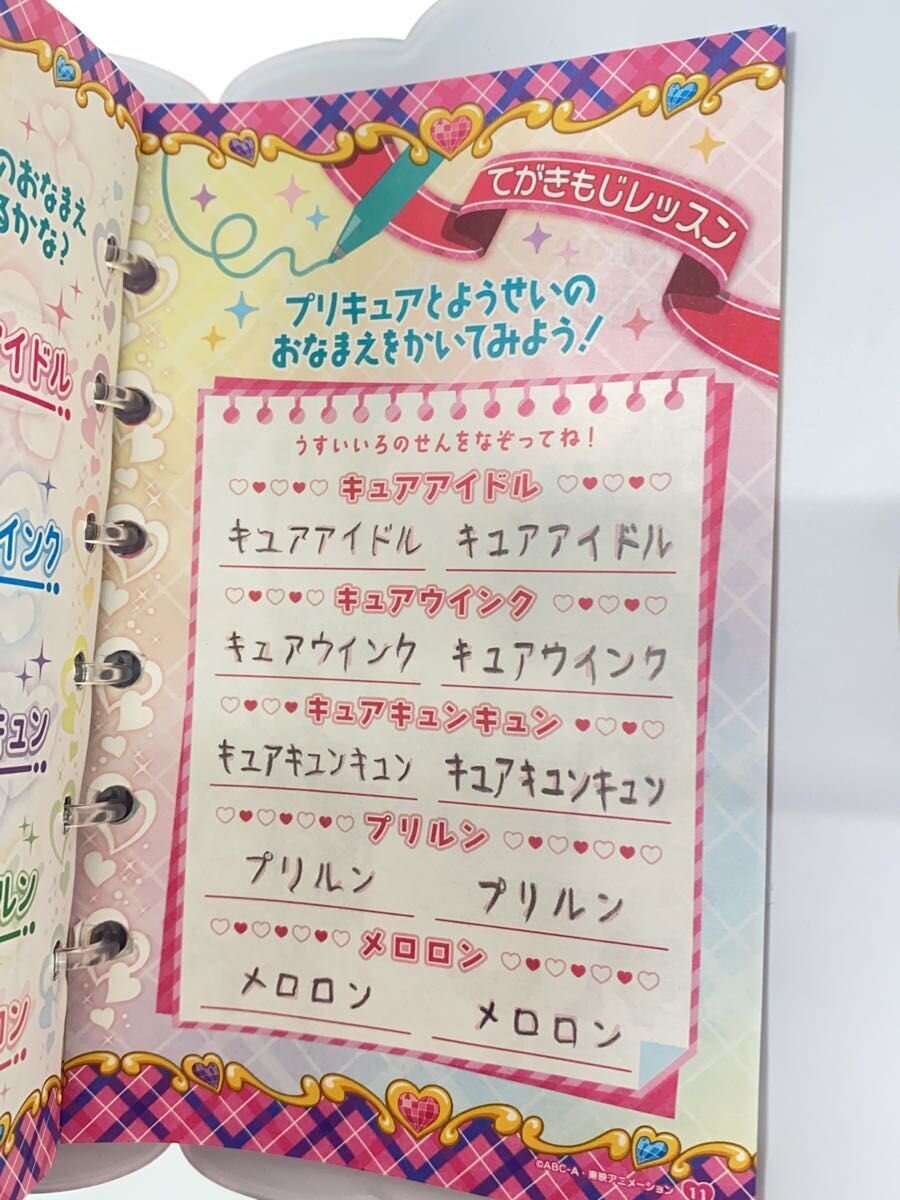 のおなまえ
るかな?
アイドル
インク
キュン
ルン
ロン
てがきもじレッスン
プリキュアとようせいの
おなまえをかいてみよう!
うすいいろのせんをなぞってね!
キュアアイドル
キュアアイドル キュアアイドル
キュアウインク
キュアウインク キュアウインク
キュアキュンキュン
キュアキュンキュン キュアキュンキュン
プリルン
プリルン プリルン
メロロン
メロロン メロロン
©ABC-A・東映アニメーション 11